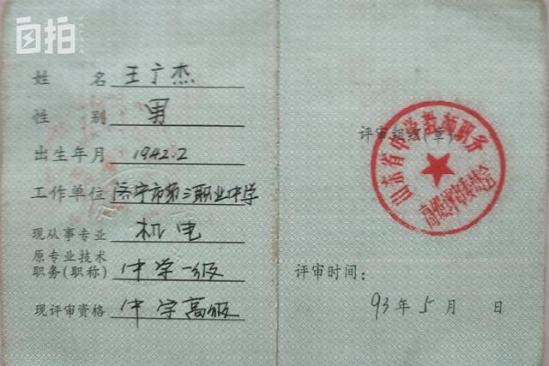 自拍
姓 名 王广杰
性 别 男
出生年月 1942.2
工作单位 济宁市第三职业中学
现从事专业 机电
原专业技术
职务(职称) 中学一级
现评审资格 中学高级
评审组织(章)
山东省中学教师职务
高级评审委员会
评审时间:
93年5月 日